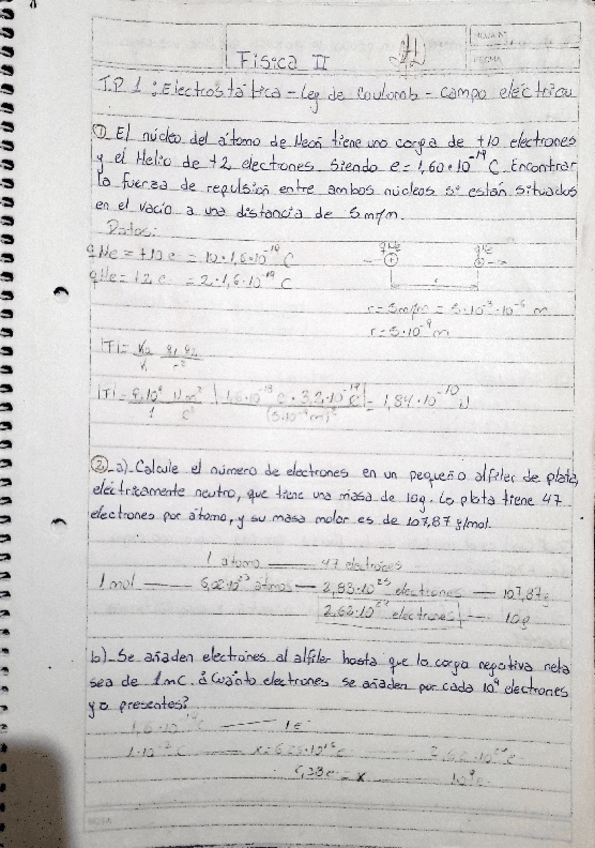 Física II
T.P 1: Electrostática - Ley de Coulomb - campo eléctrico
① El núcleo del átomo de Neón tiene una carga de +10 electrones
y el Helio de +2 electrones siendo e = 1,60·10⁻¹⁹ C. Encontrar
la fuerza de repulsión entre ambos núcleos si están situados
en el vacío a una distancia de 3 m/m.
Datos:
qNe = +10 e = 10·1,6·10⁻¹⁹ C
qHe = +2 e = 2·1,6·10⁻¹⁹ C
r = 3m/m = 3·10⁻³·10⁻⁶ m
r = 3·10⁻⁹ m
② a) Calcule el número de electrones en un pequeño alfiler de plata,
eléctricamente neutro, que tiene una masa de 10g. La plata tiene 47
electrones por átomo, y su masa molar es de 107,87 g/mol.
1 átomo — 47 electrones
1 mol — 6,02·10²³ átomos — 2,83·10²⁵ electrones — 107,87g
2,62·10²⁴ electrones — 10g
b) Se añaden electrones al alfiler hasta que la carga negativa neta
sea de 1mC. ¿Cuánto electrones se añaden por cada 10⁹ electrones
ya presentes?